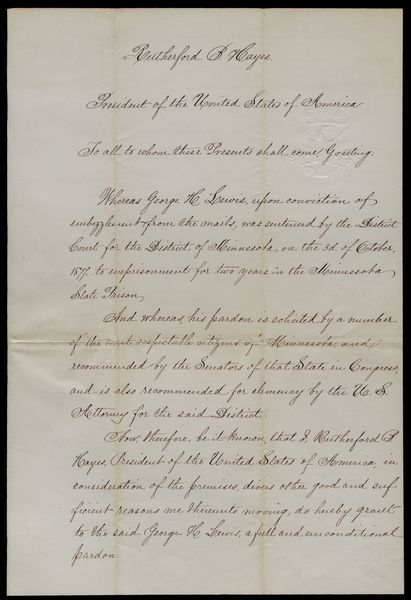 Rutherford B Hayes
President of the United States of America
To all to whom these Presents shall come, Greeting:
Whereas George H. Lewis, upon conviction of
embezzlement from the mails, was sentenced by the District
Court for the District of Minnesota, on the 3d. of October,
187 to imprisonment for two years in the Minnesota
State Prison,
And whereas, his pardon is solicited by a number
of the most respectable citizens of Minnesota, and
recommended by the Senators of that State in Congress,
and is also recommended for clemency by the U. S.
Attorney for the said District.
Now, therefore, be it known, that I, Rutherford B
Hayes, President of the United States of America, in
consideration of the premises, divers other good and suf-
ficient reasons me thereunto moving, do hereby grant
to the said George H. Lewis, a full and unconditional
pardon.